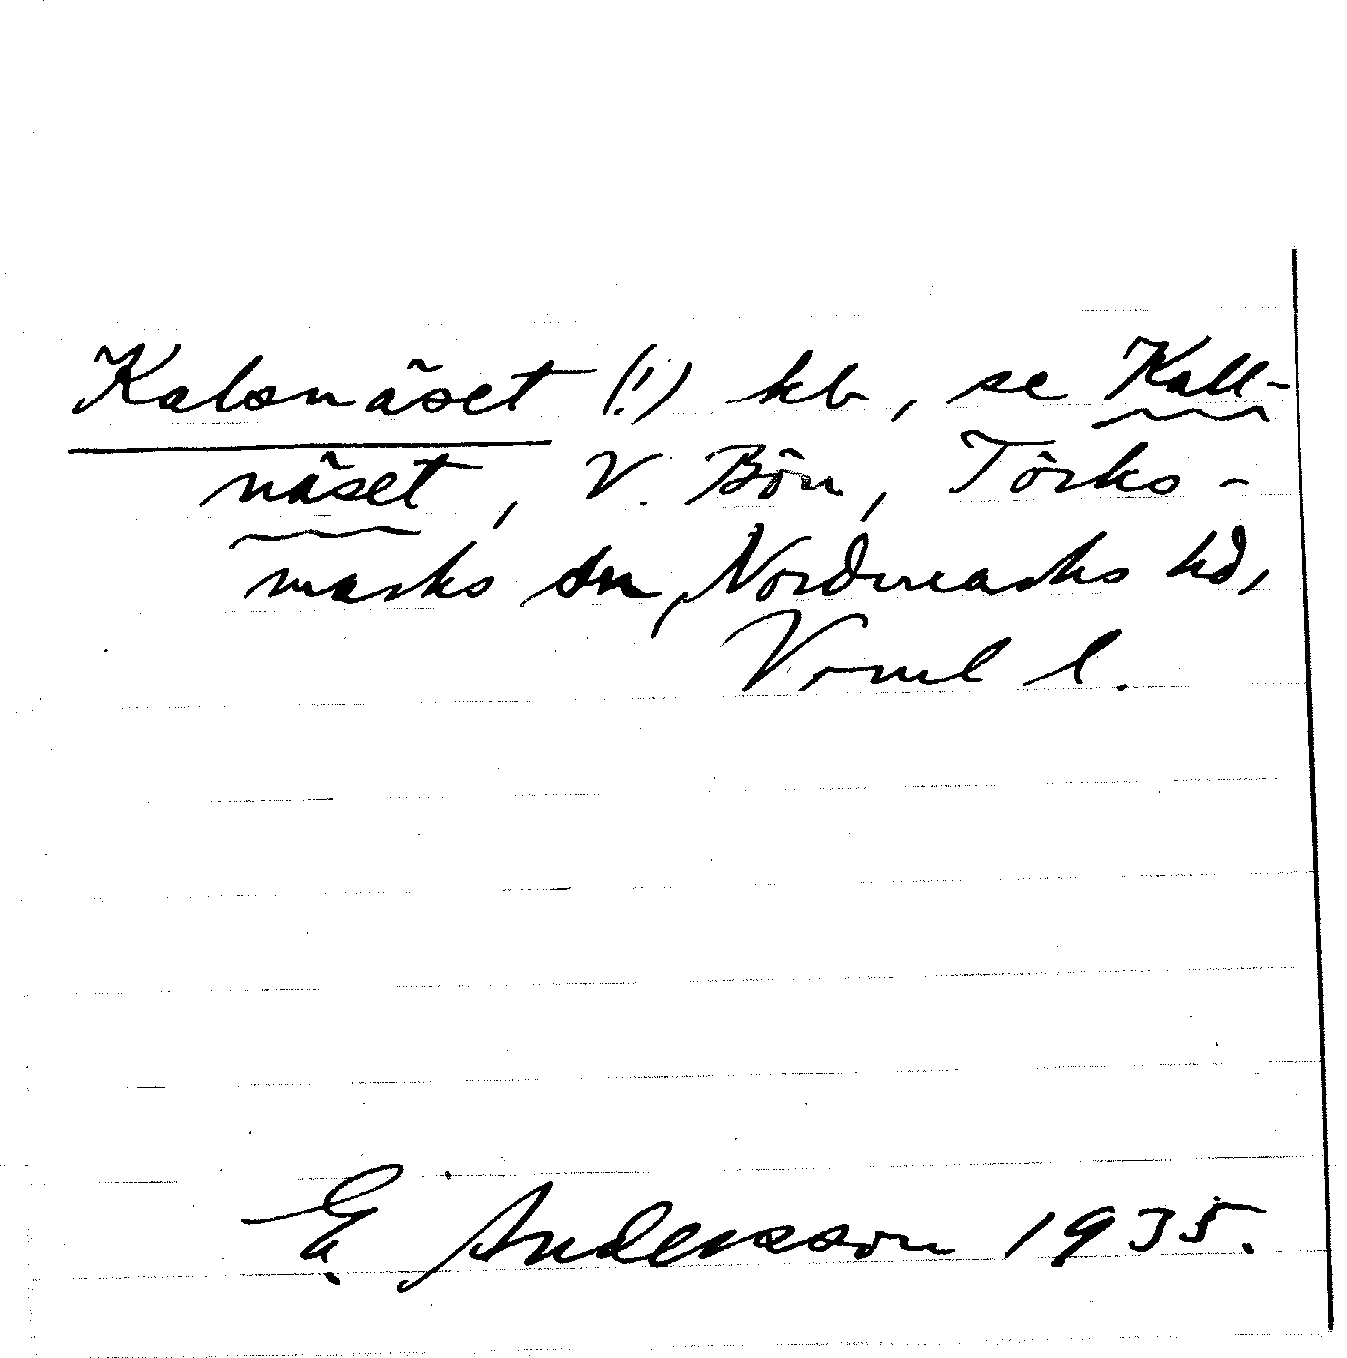 Kalsnäset (!) kb, se Kall-
näset, V. Bön, Törks-
marks sn, Nordmarks hd,
Vrml l.
E. Andersson 1935.